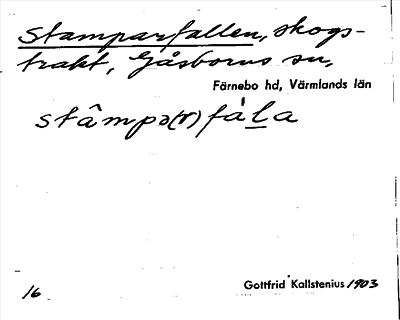 Stamparfallen, skogs-
trakt, Gåsborns sn,
Färnebo hd, Värmlands län
stâmpə(r)fàla
16
Gottfrid Kallstenius 1903